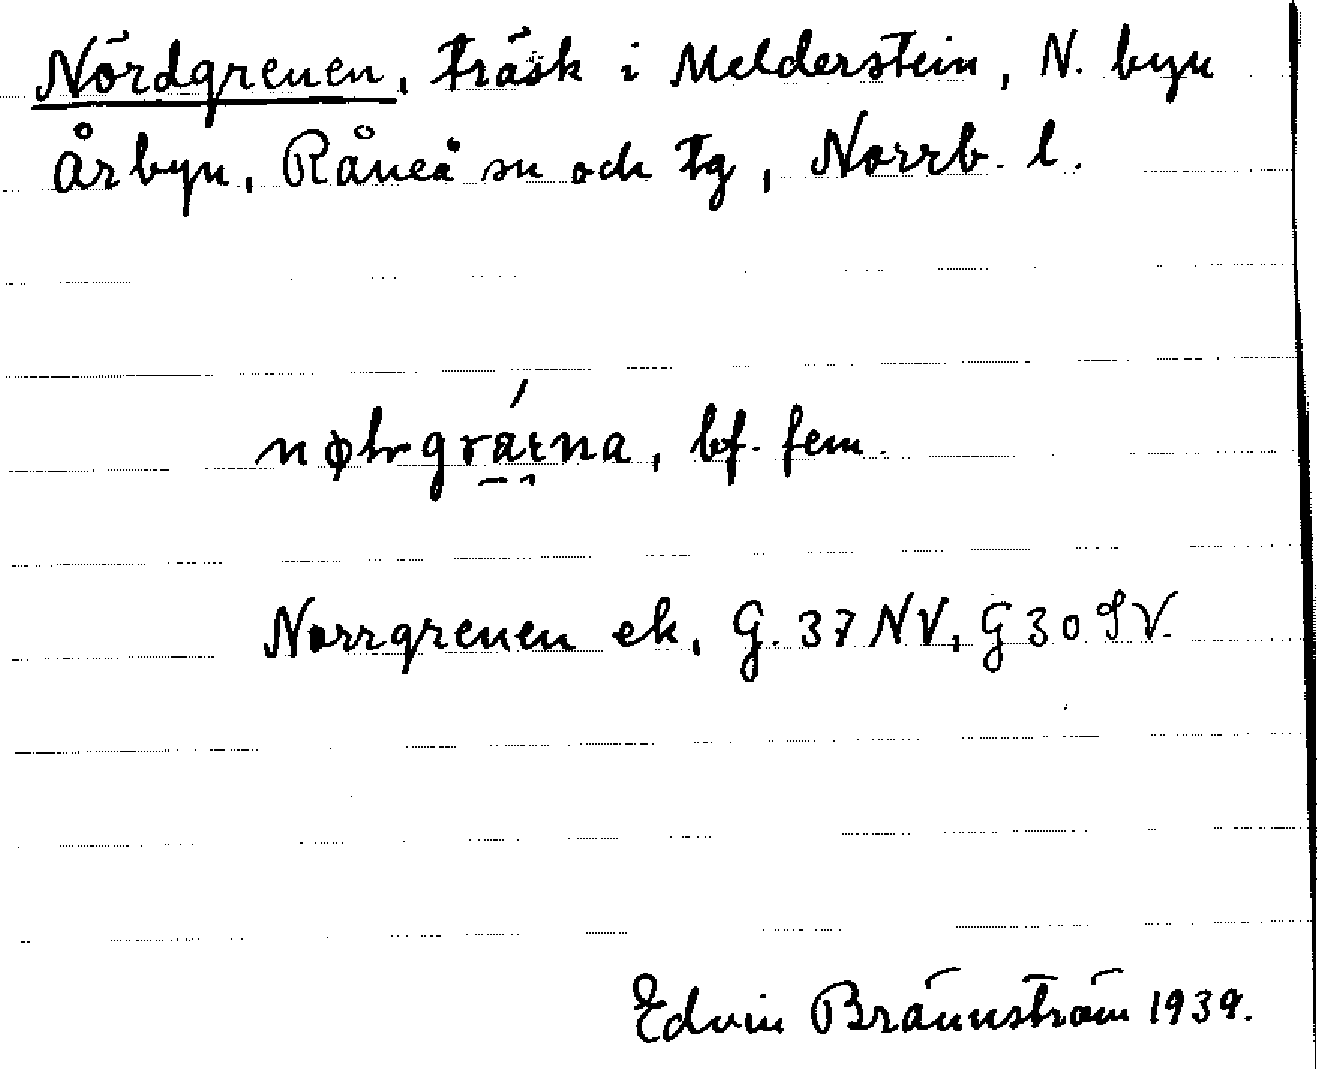 Nördgrenen, träsk i Melderstein, N. byn
Årbyn, Råneå sn och tg, Norrb. l.
bf. fem.
Norrgrenen ek. G. 37 NV, G 30 SV.
Edvin Brännström 1939.